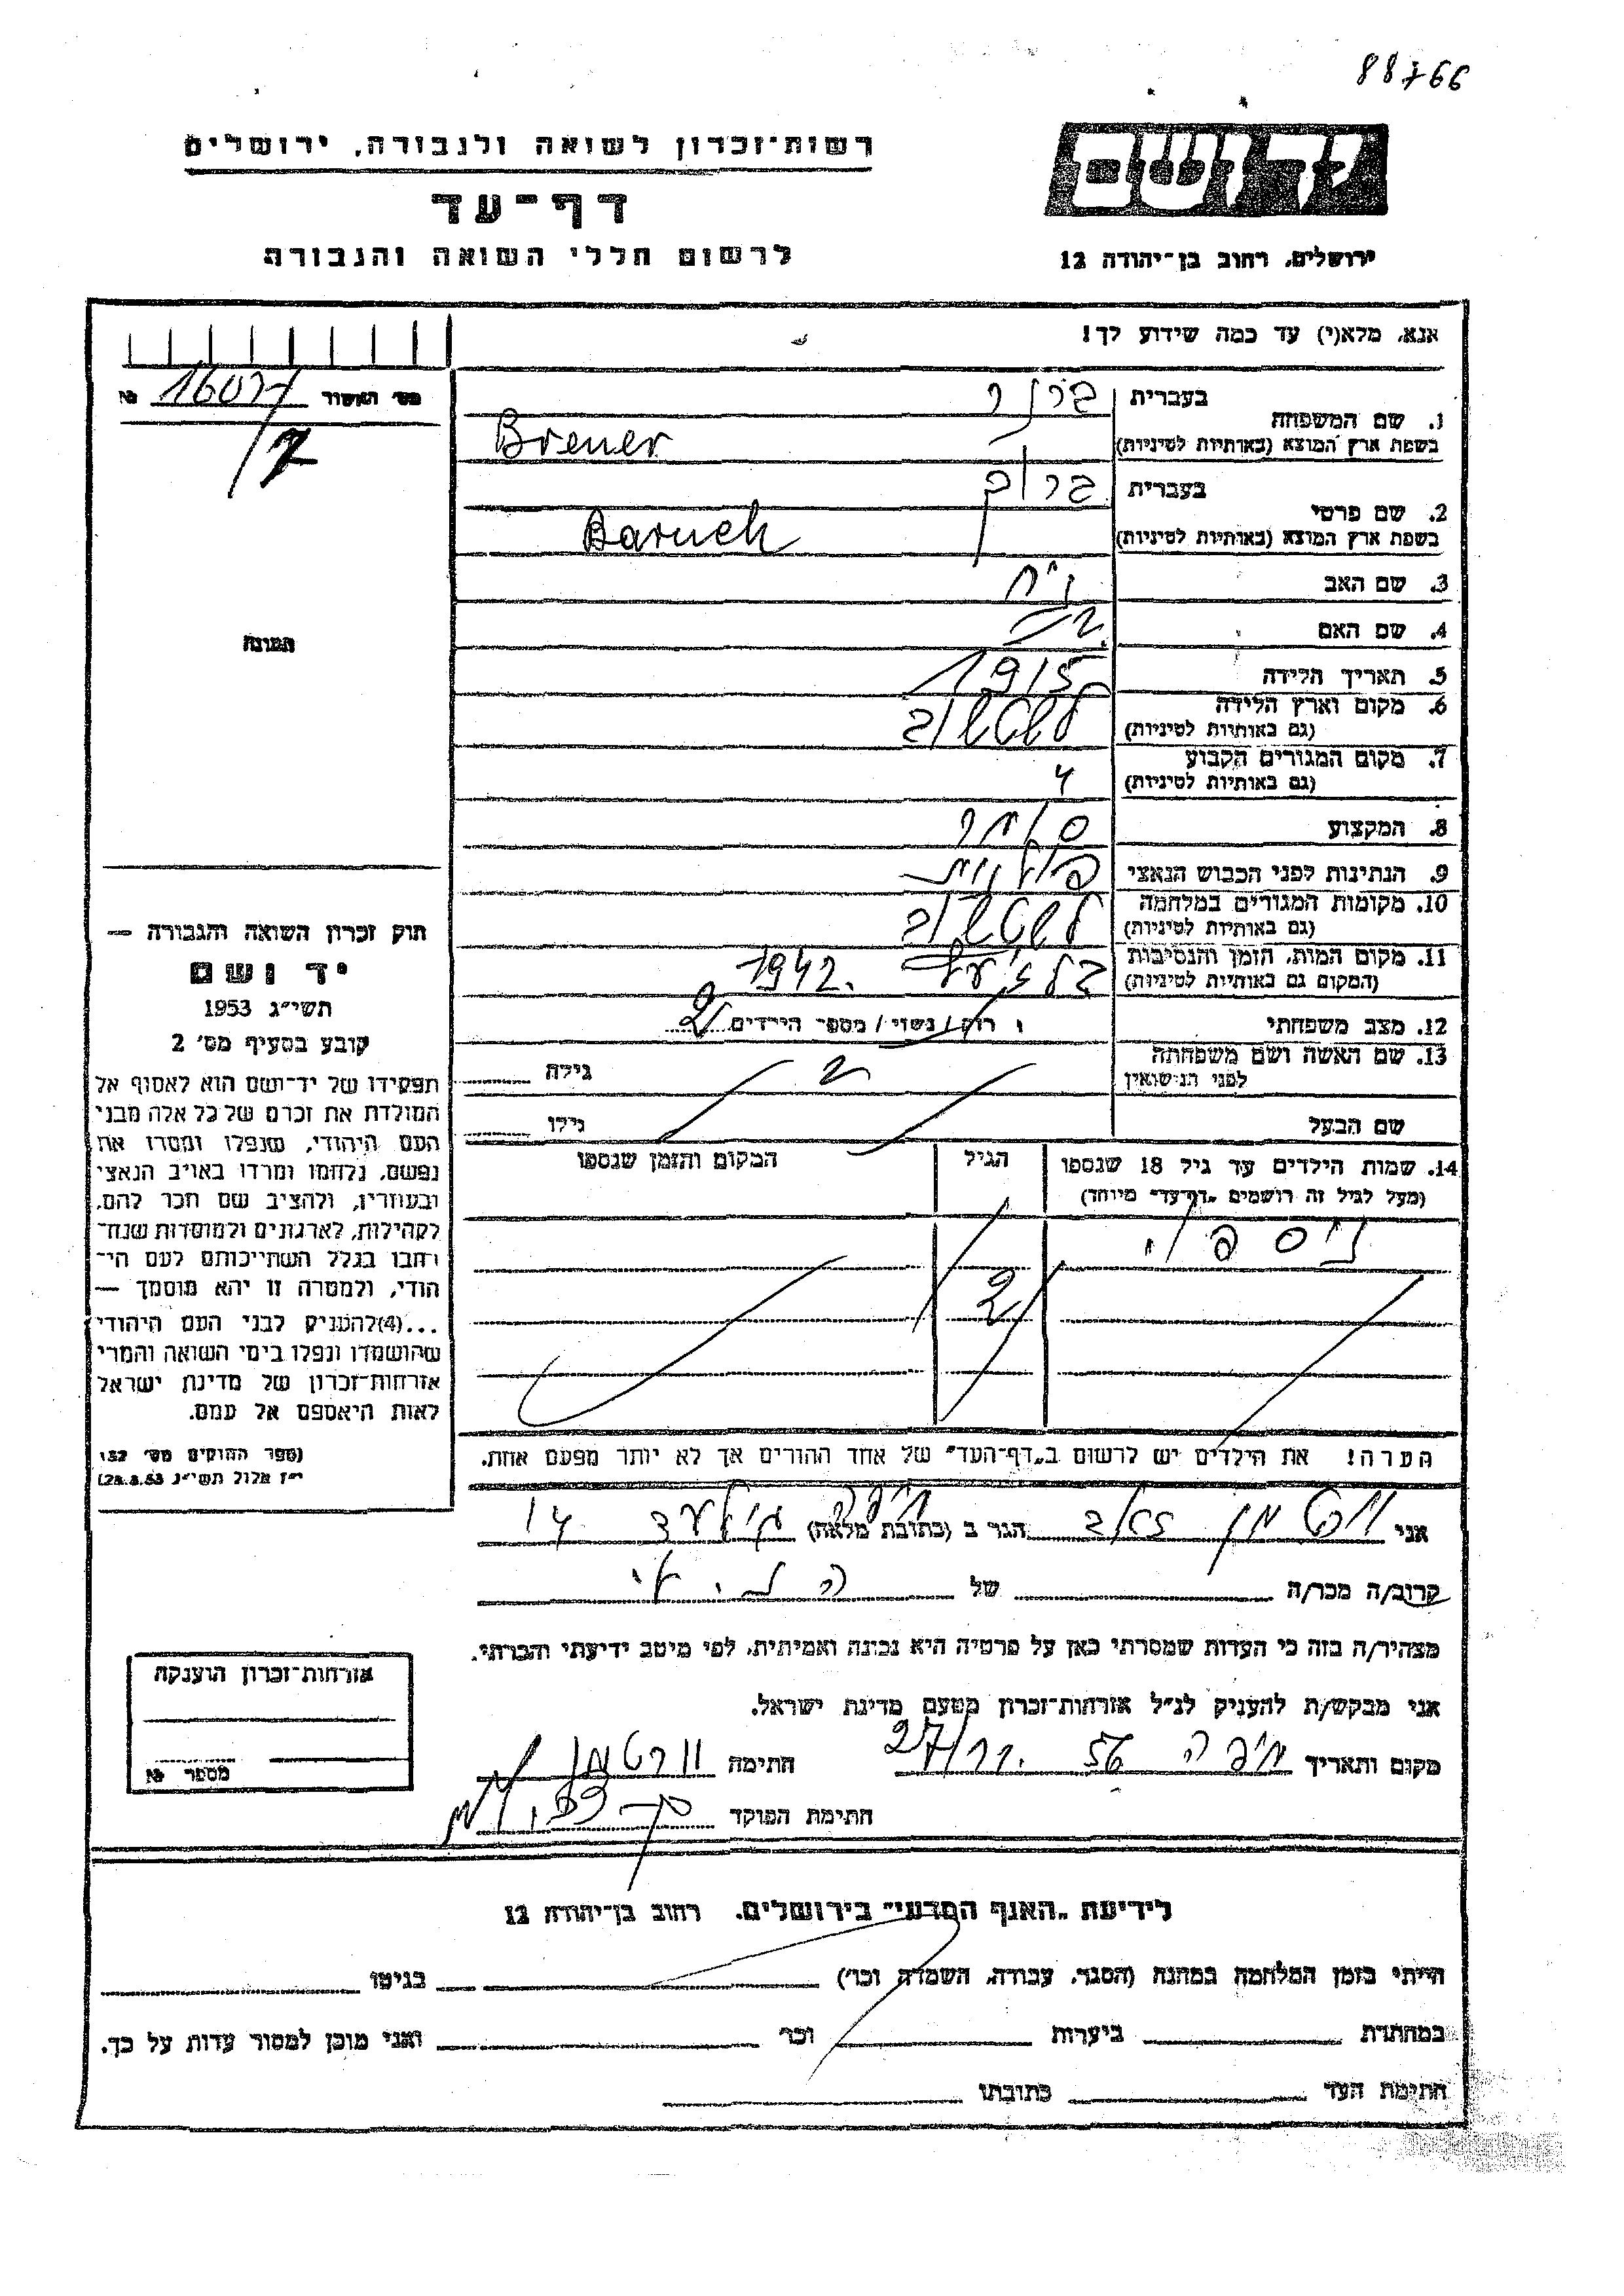 88766
רשות־זכרון לשואה ולגבורה, ירושלים
דף־עד
לרשום חללי השואה והגבורה
ירושלים, רחוב בן־יהודה 12
אנא, מלא(י) עד כמה שידוע לך!
מס׳ האשור № 16077
תמונה
חוק זכרון השואה והגבורה —
יד ושם
תשי״ג 1953
קובע בסעיף מס׳ 2
תפקידו של יד־ושם הוא לאסוף אל
המולדת את זכרם של כל אלה מבני
העם היהודי, שנפלו ומסרו את
נפשם, נלחמו ומרדו באויב הנאצי
ובעוזריו, ולהציב שם וזכר להם,
לקהילות, לארגונים ולמוסדות שנח־
רבו בגלל השתייכותם לעם הי־
הודי, ולמטרה זו יהא מוסמך —
...(4) להעניק לבני העם היהודי
שהושמדו ונפלו בימי השואה והמרי
אזרחות־זכרון של מדינת ישראל
לאות היאספם אל עמם.
(ספר החוקים מס׳ 132
י״ז אלול תשי״ג 28.8.53)
1. שם המשפחה בעברית
בשפת ארץ המוצא (באותיות לטיניות) Brener
2. שם פרטי בעברית ברוך
בשפת ארץ המוצא (באותיות לטיניות) Baruch
3. שם האב
4. שם האם
5. תאריך הלידה 1915
6. מקום וארץ הלידה
(גם באותיות לטיניות)
7. מקום המגורים הקבוע
(גם באותיות לטיניות)
8. המקצוע סוחר
9. הנתינות לפני הכבוש הנאצי פולנית
10. מקומות המגורים במלחמה
(גם באותיות לטיניות)
11. מקום המות, הזמן והנסיבות 1942.
(המקום גם באותיות לטיניות)
12. מצב משפחתי רוק / נשוי / מספר הילדים 2
13. שם האשה ושם משפחתה גילה
לפני הנישואין
שם הבעל גילו
14. שמות הילדים עד גיל 18 שנספו הגיל המקום והזמן שנספו
(מעל לגיל זה רושמים „דף־עד״ מיוחד)
ניספו
2
הערה! את הילדים יש לרשום ב„דף־העד״ של אחד ההורים אך לא יותר מפעם אחת.
אני הגר ב (כתובת מלאה) חיפה
קרוב/ה מכר/ה של
מצהיר/ה בזה כי העדות שמסרתי כאן על פרטיה היא נכונה ואמיתית, לפי מיטב ידיעתי והכרתי.
אני מבקש/ת להעניק לנ״ל אזרחות־זכרון מטעם מדינת ישראל.
מקום ותאריך חיפה 27/11. 56 חתימה
חתימת הפוקד
אזרחות־זכרון הוענקה
מספר №
לידיעת „האגף המדעי״ בירושלים, רחוב בן־יהודה 12
הייתי בזמן המלחמה במחנה (הסגר, עבודה, השמדה וכו׳) בגיטו
במחתרת ביערות וכו׳ ואני מוכן למסור עדות על כך.
חתימת העד כתובתו